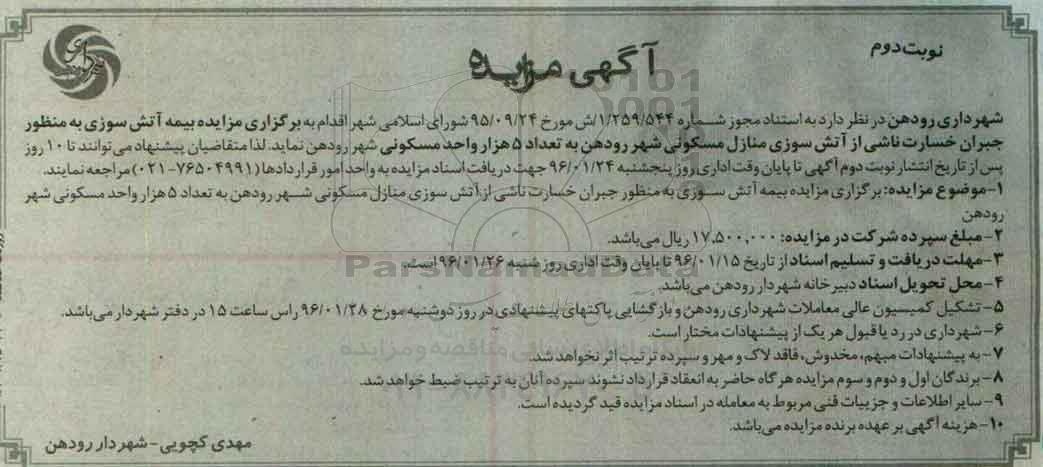 نوبت دوم
آگهی مزایده
شهرداری رودهن در نظر دارد به استناد مجوز شماره ۱/۲۵۹/۵۴۴/ش مورخ ۹۵/۰۹/۲۴ شورای اسلامی شهر اقدام به برگزاری مزایده بیمه آتش سوزی به منظور
جبران خسارت ناشی از آتش سوزی منازل مسکونی شهر رودهن به تعداد ۵ هزار واحد مسکونی شهر رودهن نماید. لذا متقاضیان پیشنهاد می توانند تا ۱۰ روز
پس از تاریخ انتشار نوبت دوم آگهی تا پایان وقت اداری روز پنجشنبه ۹۶/۰۱/۲۴ جهت دریافت اسناد مزایده به واحد امور قراردادها (۷۶۵۰۴۹۹۱-۰۲۱) مراجعه نمایند.
۱-موضوع مزایده: برگزاری مزایده بیمه آتش سوزی به منظور جبران خسارت ناشی از آتش سوزی منازل مسکونی شهر رودهن به تعداد ۵ هزار واحد مسکونی شهر
رودهن
۲-مبلغ سپرده شرکت در مزایده: ۱۷,۵۰۰,۰۰۰ ریال می باشد.
۳-مهلت دریافت و تسلیم اسناد از تاریخ ۹۶/۰۱/۱۵ تا پایان وقت اداری روز شنبه ۹۶/۰۱/۲۶ است.
۴-محل تحویل اسناد دبیرخانه شهردار رودهن می باشد.
۵-تشکیل کمیسیون عالی معاملات شهرداری رودهن و بازگشایی پاکتهای پیشنهادی در روز دوشنبه مورخ ۹۶/۰۱/۲۸ راس ساعت ۱۵ در دفتر شهردار می باشد.
۶-شهرداری در رد یا قبول هر یک از پیشنهادات مختار است.
۷-به پیشنهادات مبهم، مخدوش، فاقد لاک و مهر و سپرده ترتیب اثر نخواهد شد.
۸-برندگان اول و دوم و سوم مزایده هر گاه حاضر به انعقاد قرارداد نشوند سپرده آنان به ترتیب ضبط خواهد شد.
۹-سایر اطلاعات و جزییات فنی مربوط به معامله در اسناد مزایده قید گردیده است.
۱۰-هزینه آگهی بر عهده برنده مزایده می باشد.
مهدی کچویی-شهردار رودهن
ParsNamadData